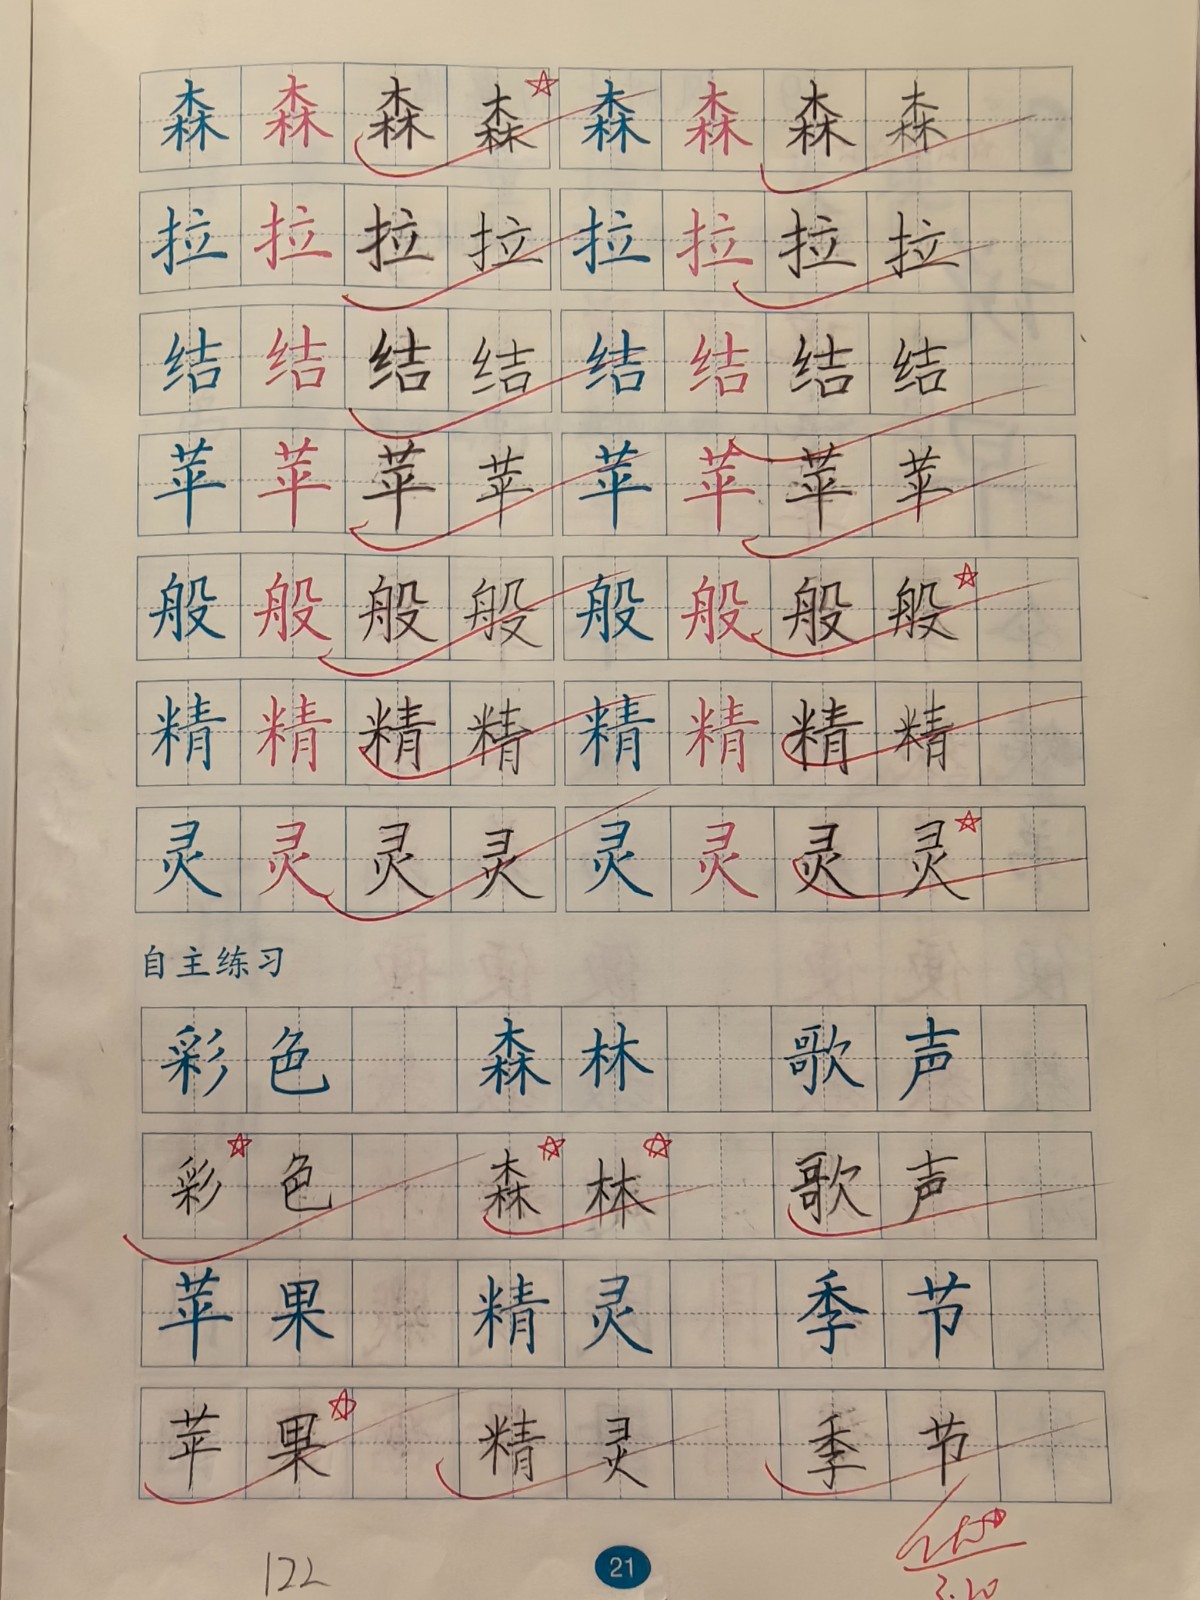 森 森 森 森 森 森 森 森
拉 拉 拉 拉 拉 拉 拉 拉
结 结 结 结 结 结 结 结
苹 苹 苹 苹 苹 苹 苹 苹
般 般 般 般 般 般 般 般
精 精 精 精 精 精 精 精
灵 灵 灵 灵 灵 灵 灵 灵
自主练习
彩色 森林 歌声
彩色 森林 歌声
苹果 精灵 季节
苹果 精灵 季节
122
21
3.20